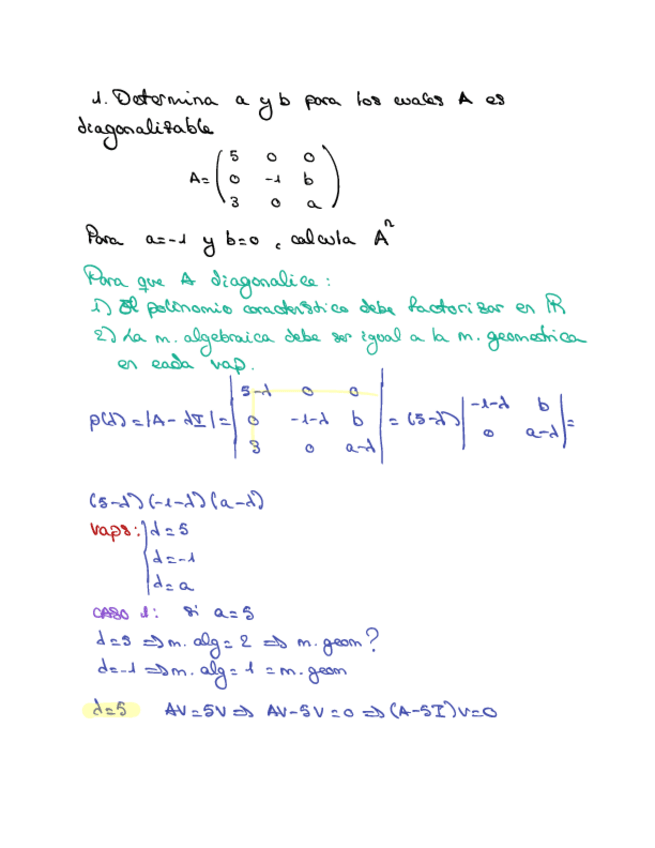 1. Determina a y b para los cuales A es
diagonalizable
A= ( 5 0 0
0 -1 b
3 0 a )
Para a=-1 y b=0, calcula Aⁿ
Para que A diagonalice:
1) El polinomio característico debe factorizar en ℝ
2) La m. algebraica debe ser igual a la m. geometrica
en cada vap.
p(λ)=|A-λI|= | 5-λ 0 0
0 -1-λ b
3 0 a-λ | = (5-λ) | -1-λ b
0 a-λ | =
(5-λ)(-1-λ)(a-λ)
Vaps: λ=5
λ=-1
λ=a
CASO 1: si a=5
λ=5 ⇒ m. alg=2 ⇒ m. geom?
λ=-1 ⇒ m. alg=1 = m. geom
λ=5 AV=5V ⇒ AV-5V=0 ⇒ (A-5I)V=0